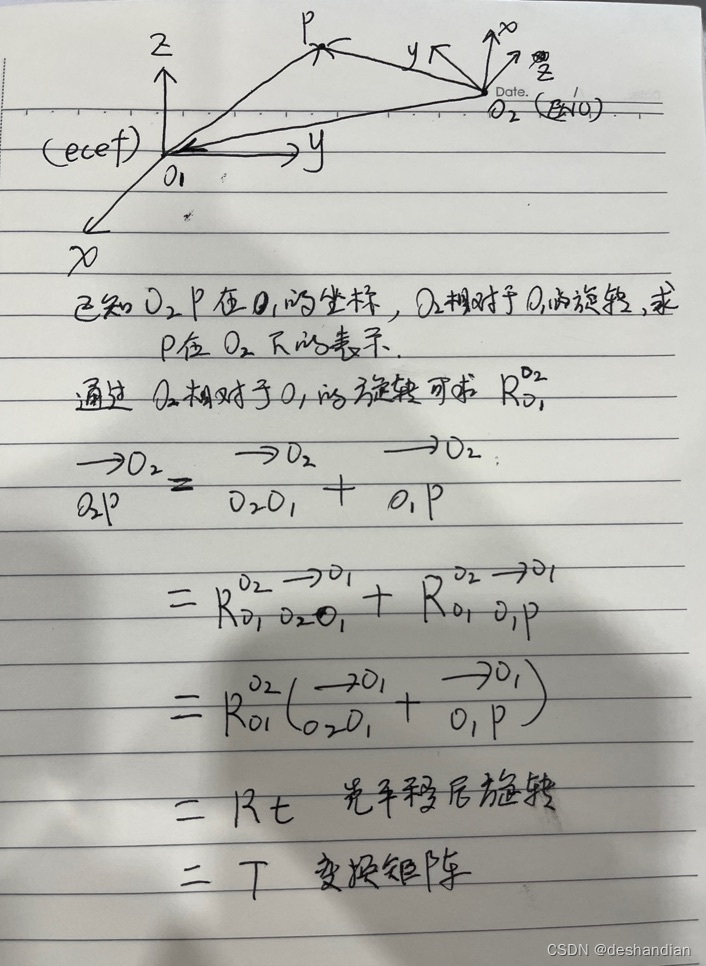 P
Z
y
x
Z
Date.
O₂
(ecef)
O₁
y
x
已知 O₂P在O₁的坐标，O₂相对于O₁的旋转，求
P在 O₂ 下的表示.
通过 O₂相对于O₁的旋转可求 R_{O₁}^{O₂}
\overrightarrow{O₂P}^{O₂} = \overrightarrow{O₂O₁}^{O₂} + \overrightarrow{O₁P}^{O₂}
= R_{O₁}^{O₂} \overrightarrow{O₂O₁}^{O₁} + R_{O₁}^{O₂} \overrightarrow{O₁P}^{O₁}
= R_{O₁}^{O₂} (\overrightarrow{O₂O₁}^{O₁} + \overrightarrow{O₁P}^{O₁})
= Rt 先平移后旋转
= T 变换矩阵
CSDN @deshandian